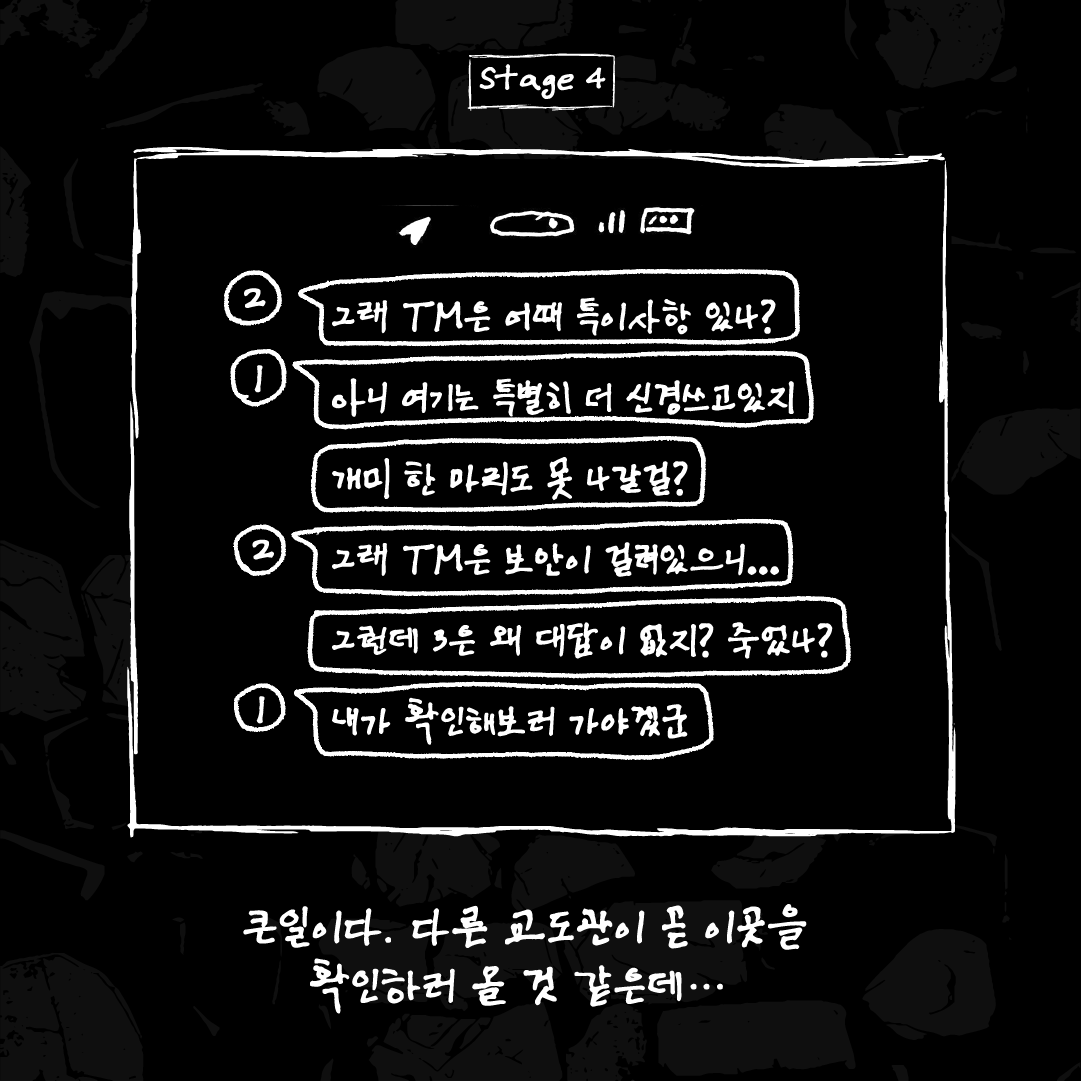 Stage 4
② 그래 TM은 어때 특이사항 있나?
① 아니 여기는 특별히 더 신경쓰고있지
개미 한 마리도 못 나갈걸?
② 그래 TM은 보안이 걸려있으니...
그런데 3은 왜 대답이 없지? 죽었나?
① 내가 확인해보러 가야겠군
큰일이다. 다른 교도관이 곧 이곳을
확인하러 올 것 같은데...